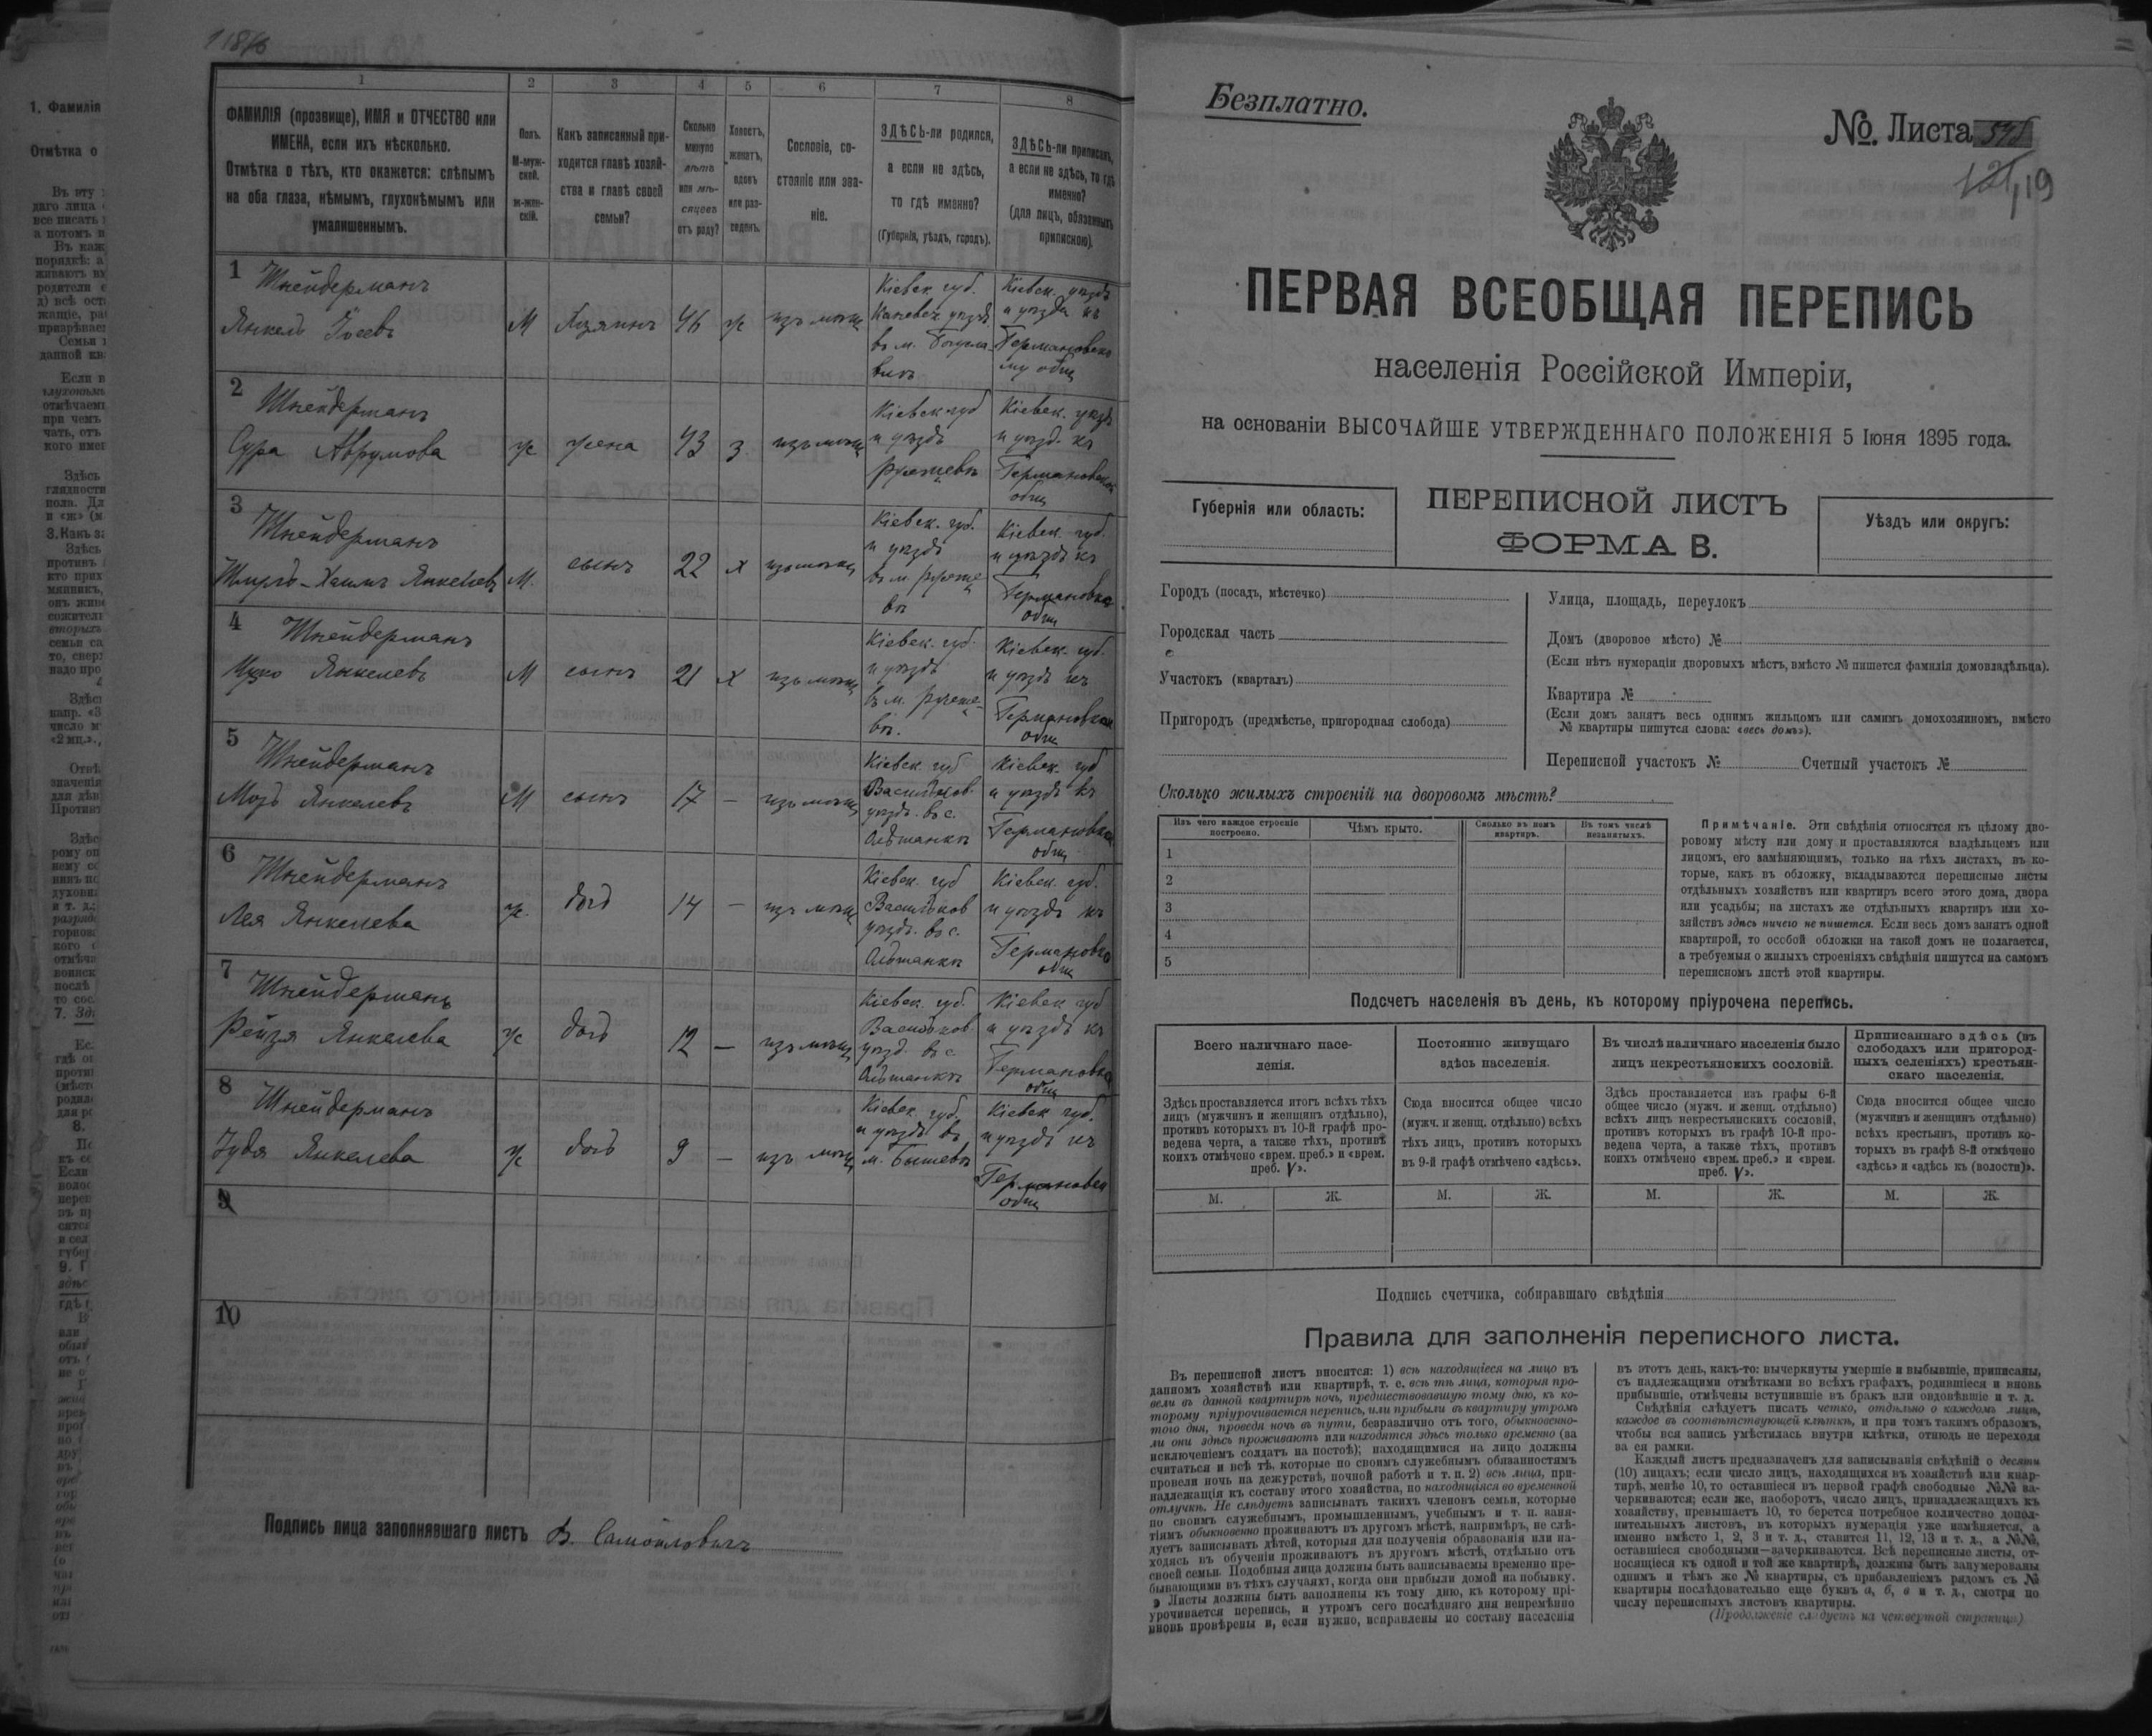 1
2
3
4
5
6
7
8
ФАМИЛІЯ (прозвище), ИМЯ и ОТЧЕСТВО или
ИМЕНА, если ихъ нѣсколько.
Отмѣтка о тѣхъ, кто окажется: слѣпымъ
на оба глаза, нѣмымъ, глухонѣмымъ или
умалишеннымъ.
Полъ.
М-муж-
ской.
ж-жен-
скій.
Какъ записанный при-
ходится главѣ хозяй-
ства и главѣ своей
семьи?
Сколько
минуло
лѣтъ
или мѣ-
сяцевъ
отъ роду?
Холостъ,
женатъ,
вдовъ
или раз-
веденъ.
Сословіе, со-
стояніе или зва-
ніе.
ЗДѢСЬ-ли родился,
а если не здѣсь,
то гдѣ именно?
(Губернія, уѣздъ, городъ).
ЗДѢСЬ-ли приписанъ,
а если не здѣсь, то гдѣ
именно?
(для лицъ, обязанныхъ
припискою).
1
Шнейдерманъ
Янкель
М Хозяинъ 46 ж изъ мѣщ
Кіевск. губ.
Каневск уѣзд.
Кіевск.
2
Шнейдерманъ
Сура Аврумова
ж жена 43 з. изъ мѣщ
Кіевск губ
и уѣздъ
3
Шнейдерманъ
Хаимъ Янкелевъ
М. сынъ 22 х изъ мѣщ
Кіевск. губ.
и уѣздъ
Кіевск. губ.
и уѣздъ къ
4
Шнейдерманъ
Янкелевъ
М сынъ 21 х изъ мѣщ
Кіевск. губ.
и уѣздъ
Кіевск. губ.
и уѣздъ къ
5
Шнейдерманъ
Янкелевъ
М сынъ 17 — изъ мѣщ
Кіевск. губ
Васильков.
уѣздъ. въ с.
Ольшанкѣ
Кіевск. губ
и уѣздъ къ
6
Шнейдерманъ
Лея Янкелева
ж. дочь 14 — изъ мѣщ
Кіевск. губ
Васильков
уѣздъ. въ с.
Ольшанкѣ
Кіевск. губ.
и уѣздъ къ
7
Шнейдерманъ
Рейзя Янкелева
ж дочь 12 — изъ мѣщ
Кіевск. губ.
Васильков.
уѣзд. въ с.
Ольшанкѣ
Кіевск губ
и уѣздъ къ
8
Шнейдерманъ
Янкелева
ж дочь 9 — изъ мѣщ
Кіевск. губ.
и уѣздъ въ
м. Бышевѣ
Кіевск губ.
и уѣздъ къ
9
10
Подпись лица заполнявшаго листъ В. Самойловичъ
Безплатно.
№. Листа
119
ПЕРВАЯ ВСЕОБЩАЯ ПЕРЕПИСЬ
населенія Россійской Имперіи,
на основаніи ВЫСОЧАЙШЕ УТВЕРЖДЕННАГО ПОЛОЖЕНІЯ 5 Іюня 1895 года.
Губернія или область:
ПЕРЕПИСНОЙ ЛИСТЪ
ФОРМА В.
Уѣздъ или округъ:
Городъ (посадъ, мѣстечко)
Городская часть
Участокъ (кварталъ)
Пригородъ (предмѣстье, пригородная слобода)
Улица, площадь, переулокъ
Домъ (дворовое мѣсто) №
(Если нѣтъ нумераціи дворовыхъ мѣстъ, вмѣсто № пишется фамилія домовладѣльца).
Квартира №
(Если домъ занятъ весь однимъ жильцомъ или самимъ домохозяиномъ, вмѣсто
№ квартиры пишутся слова: «весь домъ»).
Переписной участокъ № Счетный участокъ №
Сколько жилыхъ строеній на дворовомъ мѣстѣ?
Изъ чего каждое строеніе
построено.
Чѣмъ крыто.
Сколько въ немъ
квартиръ.
Въ томъ числѣ
незанятыхъ.
1
2
3
4
5
Примѣчаніе. Эти свѣдѣнія относятся къ цѣлому дво-
ровому мѣсту или дому и проставляются владѣльцемъ или
лицомъ, его замѣняющимъ, только на тѣхъ листахъ, въ ко-
торые, какъ въ обложку, вкладываются переписные листы
отдѣльныхъ хозяйствъ или квартиръ всего этого дома, двора
или усадьбы; на листахъ же отдѣльныхъ квартиръ или хо-
зяйствъ здѣсь ничего не пишется. Если весь домъ занятъ одной
квартирой, то особой обложки на такой домъ не полагается,
а требуемыя о жилыхъ строеніяхъ свѣдѣнія пишутся на самомъ
переписномъ листѣ этой квартиры.
Подсчетъ населенія въ день, къ которому пріурочена перепись.
Всего наличнаго насе-
ленія.
Постоянно живущаго
здѣсь населенія.
Въ числѣ наличнаго населенія было
лицъ некрестьянскихъ сословій.
Приписаннаго здѣсь (въ
слободахъ или пригород-
ныхъ селеніяхъ) крестьян-
скаго населенія.
Здѣсь проставляется итогъ всѣхъ тѣхъ
лицъ (мужчинъ и женщинъ отдѣльно),
противъ которыхъ въ 10-й графѣ про-
ведена черта, а также тѣхъ, противъ
коихъ отмѣчено «врем. преб.» и «врем.
преб. V».
Сюда вносится общее число
(мужч. и женщ. отдѣльно) всѣхъ
тѣхъ лицъ, противъ которыхъ
въ 9-й графѣ отмѣчено «здѣсь».
Здѣсь проставляется изъ графы 6-й
общее число (мужч. и женщ. отдѣльно)
всѣхъ лицъ некрестьянскихъ сословій,
противъ которыхъ въ графѣ 10-й про-
ведена черта, а также тѣхъ, противъ
коихъ отмѣчено «врем. преб.» и «врем.
преб. V».
Сюда вносится общее число
(мужчинъ и женщинъ отдѣльно)
всѣхъ крестьянъ, противъ ко-
торыхъ въ графѣ 8-й отмѣчено
«здѣсь» и «здѣсь къ (волости)».
М. Ж. М. Ж. М. Ж. М. Ж.
Подпись счетчика, собиравшаго свѣдѣнія
Правила для заполненія переписного листа.
Въ переписной листъ вносятся: 1) всѣ находящіеся на лицо въ
данномъ хозяйствѣ или квартирѣ, т. е. всѣ тѣ лица, которыя про-
вели въ данной квартирѣ ночь, предшествовавшую тому дню, къ ко-
торому пріурочивается перепись, или прибыли въ квартиру утромъ
того дня, проведя ночь въ пути, безразлично отъ того, обыкновенно-
ли они здѣсь проживаютъ или находятся здѣсь только временно (за
исключеніемъ солдатъ на постоѣ); находящимися на лицо должны
считаться и всѣ тѣ, которые по своимъ служебнымъ обязанностямъ
провели ночь на дежурствѣ, ночной работѣ и т. п. 2) всѣ лица, при-
надлежащія къ составу этого хозяйства, но находящіяся во временной
отлучкѣ. Не слѣдуетъ записывать такихъ членовъ семьи, которые
по своимъ служебнымъ, промышленнымъ, учебнымъ и т. п. заня-
тіямъ обыкновенно проживаютъ въ другомъ мѣстѣ, напримѣръ, не слѣ-
дуетъ записывать дѣтей, которыя для полученія образованія или на-
ходясь въ обученіи проживаютъ въ другомъ мѣстѣ, отдѣльно отъ
своей семьи. Подобныя лица должны быть записываемы временно пре-
бывающими въ тѣхъ случаяхъ, когда они прибыли домой на побывку.
Листы должны быть заполнены къ тому дню, къ которому прі-
урочивается перепись, и утромъ сего послѣдняго дня непремѣнно
вновь провѣрены и, если нужно, исправлены по составу населенія
въ этотъ день, какъ-то: вычеркнуты умершіе и выбывшіе, приписаны,
съ надлежащими отмѣтками во всѣхъ графахъ, родившіеся и вновь
прибывшіе, отмѣчены вступившіе въ бракъ или овдовѣвшіе и т. д.
Свѣдѣнія слѣдуетъ писать четко, отдѣльно о каждомъ лицѣ,
каждое въ соотвѣтствующей клѣткѣ, и при томъ такимъ образомъ,
чтобы вся запись умѣстилась внутри клѣтки, отнюдь не переходя
за ея рамки.
Каждый листъ предназначенъ для записыванія свѣдѣній о десяти
(10) лицахъ; если число лицъ, находящихся въ хозяйствѣ или квар-
тирѣ, менѣе 10, то оставшіеся въ первой графѣ свободные №№ за-
черкиваются; если же, наоборотъ, число лицъ, принадлежащихъ къ
хозяйству, превышаетъ 10, то берется потребное количество допол-
нительныхъ листовъ, въ которыхъ нумерація уже измѣняется, а
именно вмѣсто 1, 2, 3 и т. д., ставится 11, 12, 13 и т. д., а №№,
оставшіеся свободными—зачеркиваются. Всѣ переписные листы, от-
носящіеся къ одной и той же квартирѣ, должны быть занумерованы
однимъ и тѣмъ же № квартиры, съ прибавленіемъ рядомъ съ №
квартиры послѣдовательно еще буквъ а, б, в и т. д., смотря по
числу переписныхъ листовъ квартиры.
(Продолженіе слѣдуетъ на четвертой страницѣ)